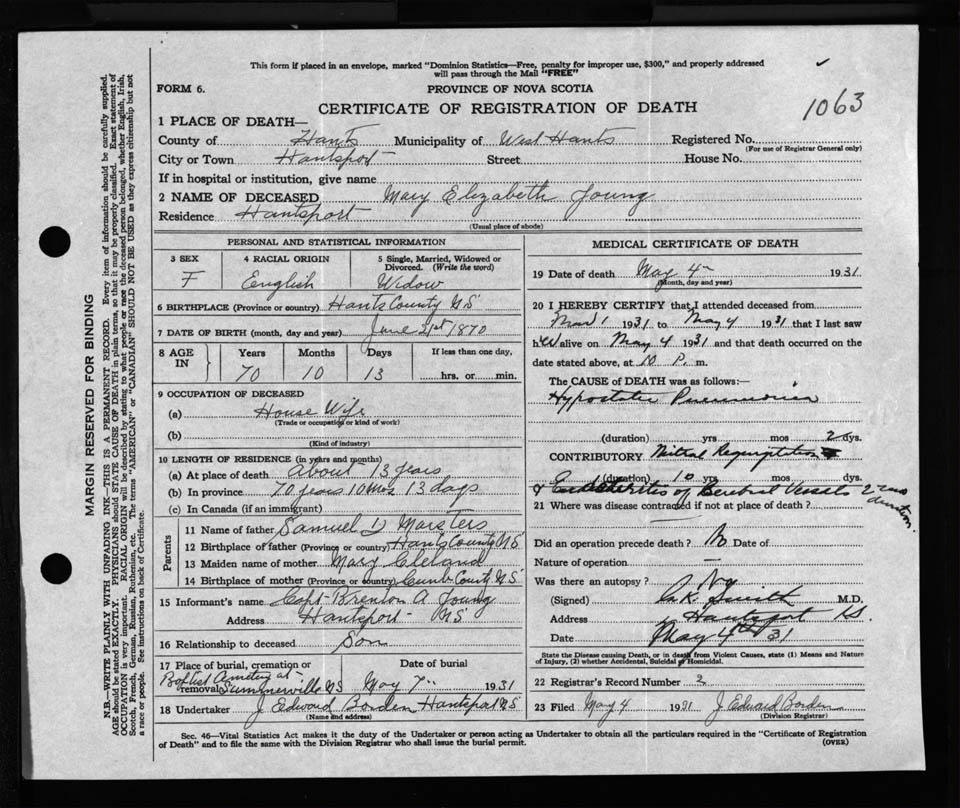 This form if placed in an envelope, marked "Dominion Statistics—Free, penalty for improper use, $300," and properly addressed
will pass through the Mail "FREE"
FORM 6. PROVINCE OF NOVA SCOTIA
CERTIFICATE OF REGISTRATION OF DEATH
1063
1 PLACE OF DEATH—
County of Hants Municipality of West Hants Registered No.
(For use of Registrar General only)
City or Town Hantsport Street House No.
If in hospital or institution, give name
2 NAME OF DECEASED Mary Elizabeth Young
Residence Hantsport
(Usual place of abode)
PERSONAL AND STATISTICAL INFORMATION
3 SEX 4 RACIAL ORIGIN 5 Single, Married, Widowed or
Divorced. (Write the word)
F English Widow
6 BIRTHPLACE (Province or country) Hants County N S
7 DATE OF BIRTH (month, day and year) June 21st 1870
8 AGE IN Years Months Days If less than one day,
70 10 13 hrs. or min.
9 OCCUPATION OF DECEASED
(a) House Wife
(Trade or occupation or kind of work)
(b)
(Kind of industry)
10 LENGTH OF RESIDENCE (in years and months)
(a) At place of death About 13 years
(b) In province 70 years 10 mos 13 days
(c) In Canada (if an immigrant)
Parents
11 Name of father Samuel D Marsters
12 Birthplace of father (Province or country) Hants County N S
13 Maiden name of mother Mary Cleland
14 Birthplace of mother (Province or country) Cumb County N S
15 Informant's name Capt Brenton A Young
Address Hantsport N S
16 Relationship to deceased Son
17 Place of burial, cremation or Date of burial
Baptist Cemetery at
removal Summerville N S May 7 1931
18 Undertaker J Edward Borden Hantsport N S
(Name and address)
MEDICAL CERTIFICATE OF DEATH
19 Date of death May 4 1931
(Month, day and year)
20 I HEREBY CERTIFY that I attended deceased from
Mar 1 1931 to May 4 1931 that I last saw
her alive on May 4 1931 and that death occurred on the
date stated above, at 10 P. m.
The CAUSE of DEATH was as follows:—
Hypostatic Pneumonia
(duration) yrs mos 2 dys.
CONTRIBUTORY Mitral Regurgitation
(duration) 10 yrs mos dys.
& of Vessels 2 duration
21 Where was disease contracted if not at place of death?
Did an operation precede death? No Date of
Nature of operation —
Was there an autopsy? No
(Signed) Smith M.D.
Address Hantsport N.S.
Date May 4th 31
State the Disease causing Death, or in death from Violent Causes, state (1) Means and Nature
of Injury, (2) whether Accidental, Suicidal or Homicidal.
22 Registrar's Record Number 2
23 Filed May 4 1931 J Edward Borden
(Division Registrar)
Sec. 46—Vital Statistics Act makes it the duty of the Undertaker or person acting as Undertaker to obtain all the particulars required in the "Certificate of Registration
of Death" and to file the same with the Division Registrar who shall issue the burial permit. (OVER)
MARGIN RESERVED FOR BINDING
N.B.—WRITE PLAINLY WITH UNFADING INK—THIS IS A PERMANENT RECORD. Every item of information should be carefully supplied.
AGE should be stated EXACTLY. PHYSICIANS should STATE CAUSE OF DEATH in plain terms, so that it may be properly classified. Exact statement of
OCCUPATION is very important. RACIAL ORIGIN will be described by stating to what people or race the deceased person belonged, whether English, Irish,
Scotch, French, German, Russian, Ruthenian, etc. The terms "AMERICAN" or "CANADIAN" SHOULD NOT BE USED as they express citizenship but not
a race or people. See instructions on back of Certificate.